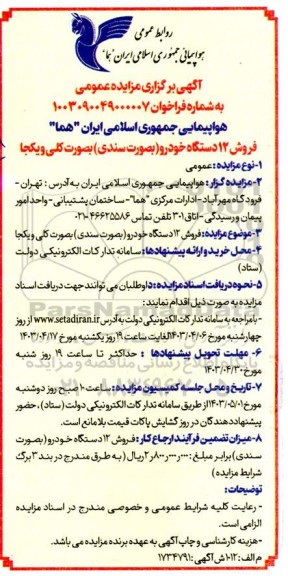 روابط عمومی
هواپیمائی جمهوری اسلامی ایران "هما"
آگهی برگزاری مزایده عمومی
به شماره فراخوان ۱۰۰۳۰۹۰۰۴۹۰۰۰۰۰۷
هواپیمایی جمهوری اسلامی ایران "هما"
فروش ۱۲ دستگاه خودرو (بصورت سندی) بصورت کلی و یکجا
۱-نوع مزایده: عمومی
۲-مزایده گزار: هواپیمایی جمهوری اسلامی ایران به آدرس: تهران -
فرودگاه مهرآباد-ادارات مرکزی "هما"- ساختمان پشتیبانی- واحد امور
پیمان و رسیدگی-اتاق ۳۰۱ تلفن تماس ۴۶۶۲۵۵۸۶-۰۲۱
۳- موضوع مزایده: فروش ۱۲ دستگاه خودرو (بصورت سندی) بصورت کلی و یکجا
۴-محل خرید و ارائه پیشنهادها: سامانه تدارکات الکترونیکی دولت
(ستاد)
۵-نحوه دریافت اسناد مزایده: داوطلبان می توانند جهت دریافت اسناد
مزایده به صورت ذیل اقدام نمایند:
-با مراجعه به سامانه تدارکات الکترونیکی دولت به آدرس www.setadiran.ir از روز
چهارشنبه مورخ ۱۴۰۳/۰۴/۰۶ لغایت ساعت ۱۹ روز یکشنبه مورخ ۱۴۰۳/۰۴/۱۷
۶- مهلت تحویل پیشنهادها : حداکثر تا ساعت ۱۹ روز شنبه
مورخ ۱۴۰۳/۰۴/۳۰
۷-تاریخ و محل جلسه کمیسیون مزایده: ساعت ۱۰ صبح روز دوشنبه
مورخ ۱۴۰۳/۰۵/۰۱ از طریق سامانه تدارکات الکترونیکی دولت (ستاد)، حضور
پیشنهاد دهندگان در روز گشایش پاکات قیمت بلامانع است.
۸-میزان تضمین فرآیند ارجاع کار: فروش ۱۲ دستگاه خودرو (بصورت
سندی) برابر مبلغ: ریال (به طرق مندرج در بند ۳ برگ
شرایط مزایده)
توضیحات:
- رعایت کلیه شرایط عمومی و خصوصی مندرج در اسناد مزایده
الزامی است.
- هزینه کارشناسی و چاپ آگهی به عهده برنده مزایده می باشد.
م الف: ۱۰۱۲ ش آگهی: ۱۷۳۴۷۹۱